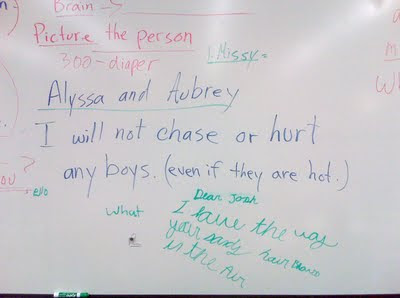 Brain →
Picture the person
300-diaper
1. Missy =
Alyssa and Aubrey
I will not chase or hurt
any boys. (even if they are hot.)
What
Dear Jonah
I love the way
your sandy hair
is the Air